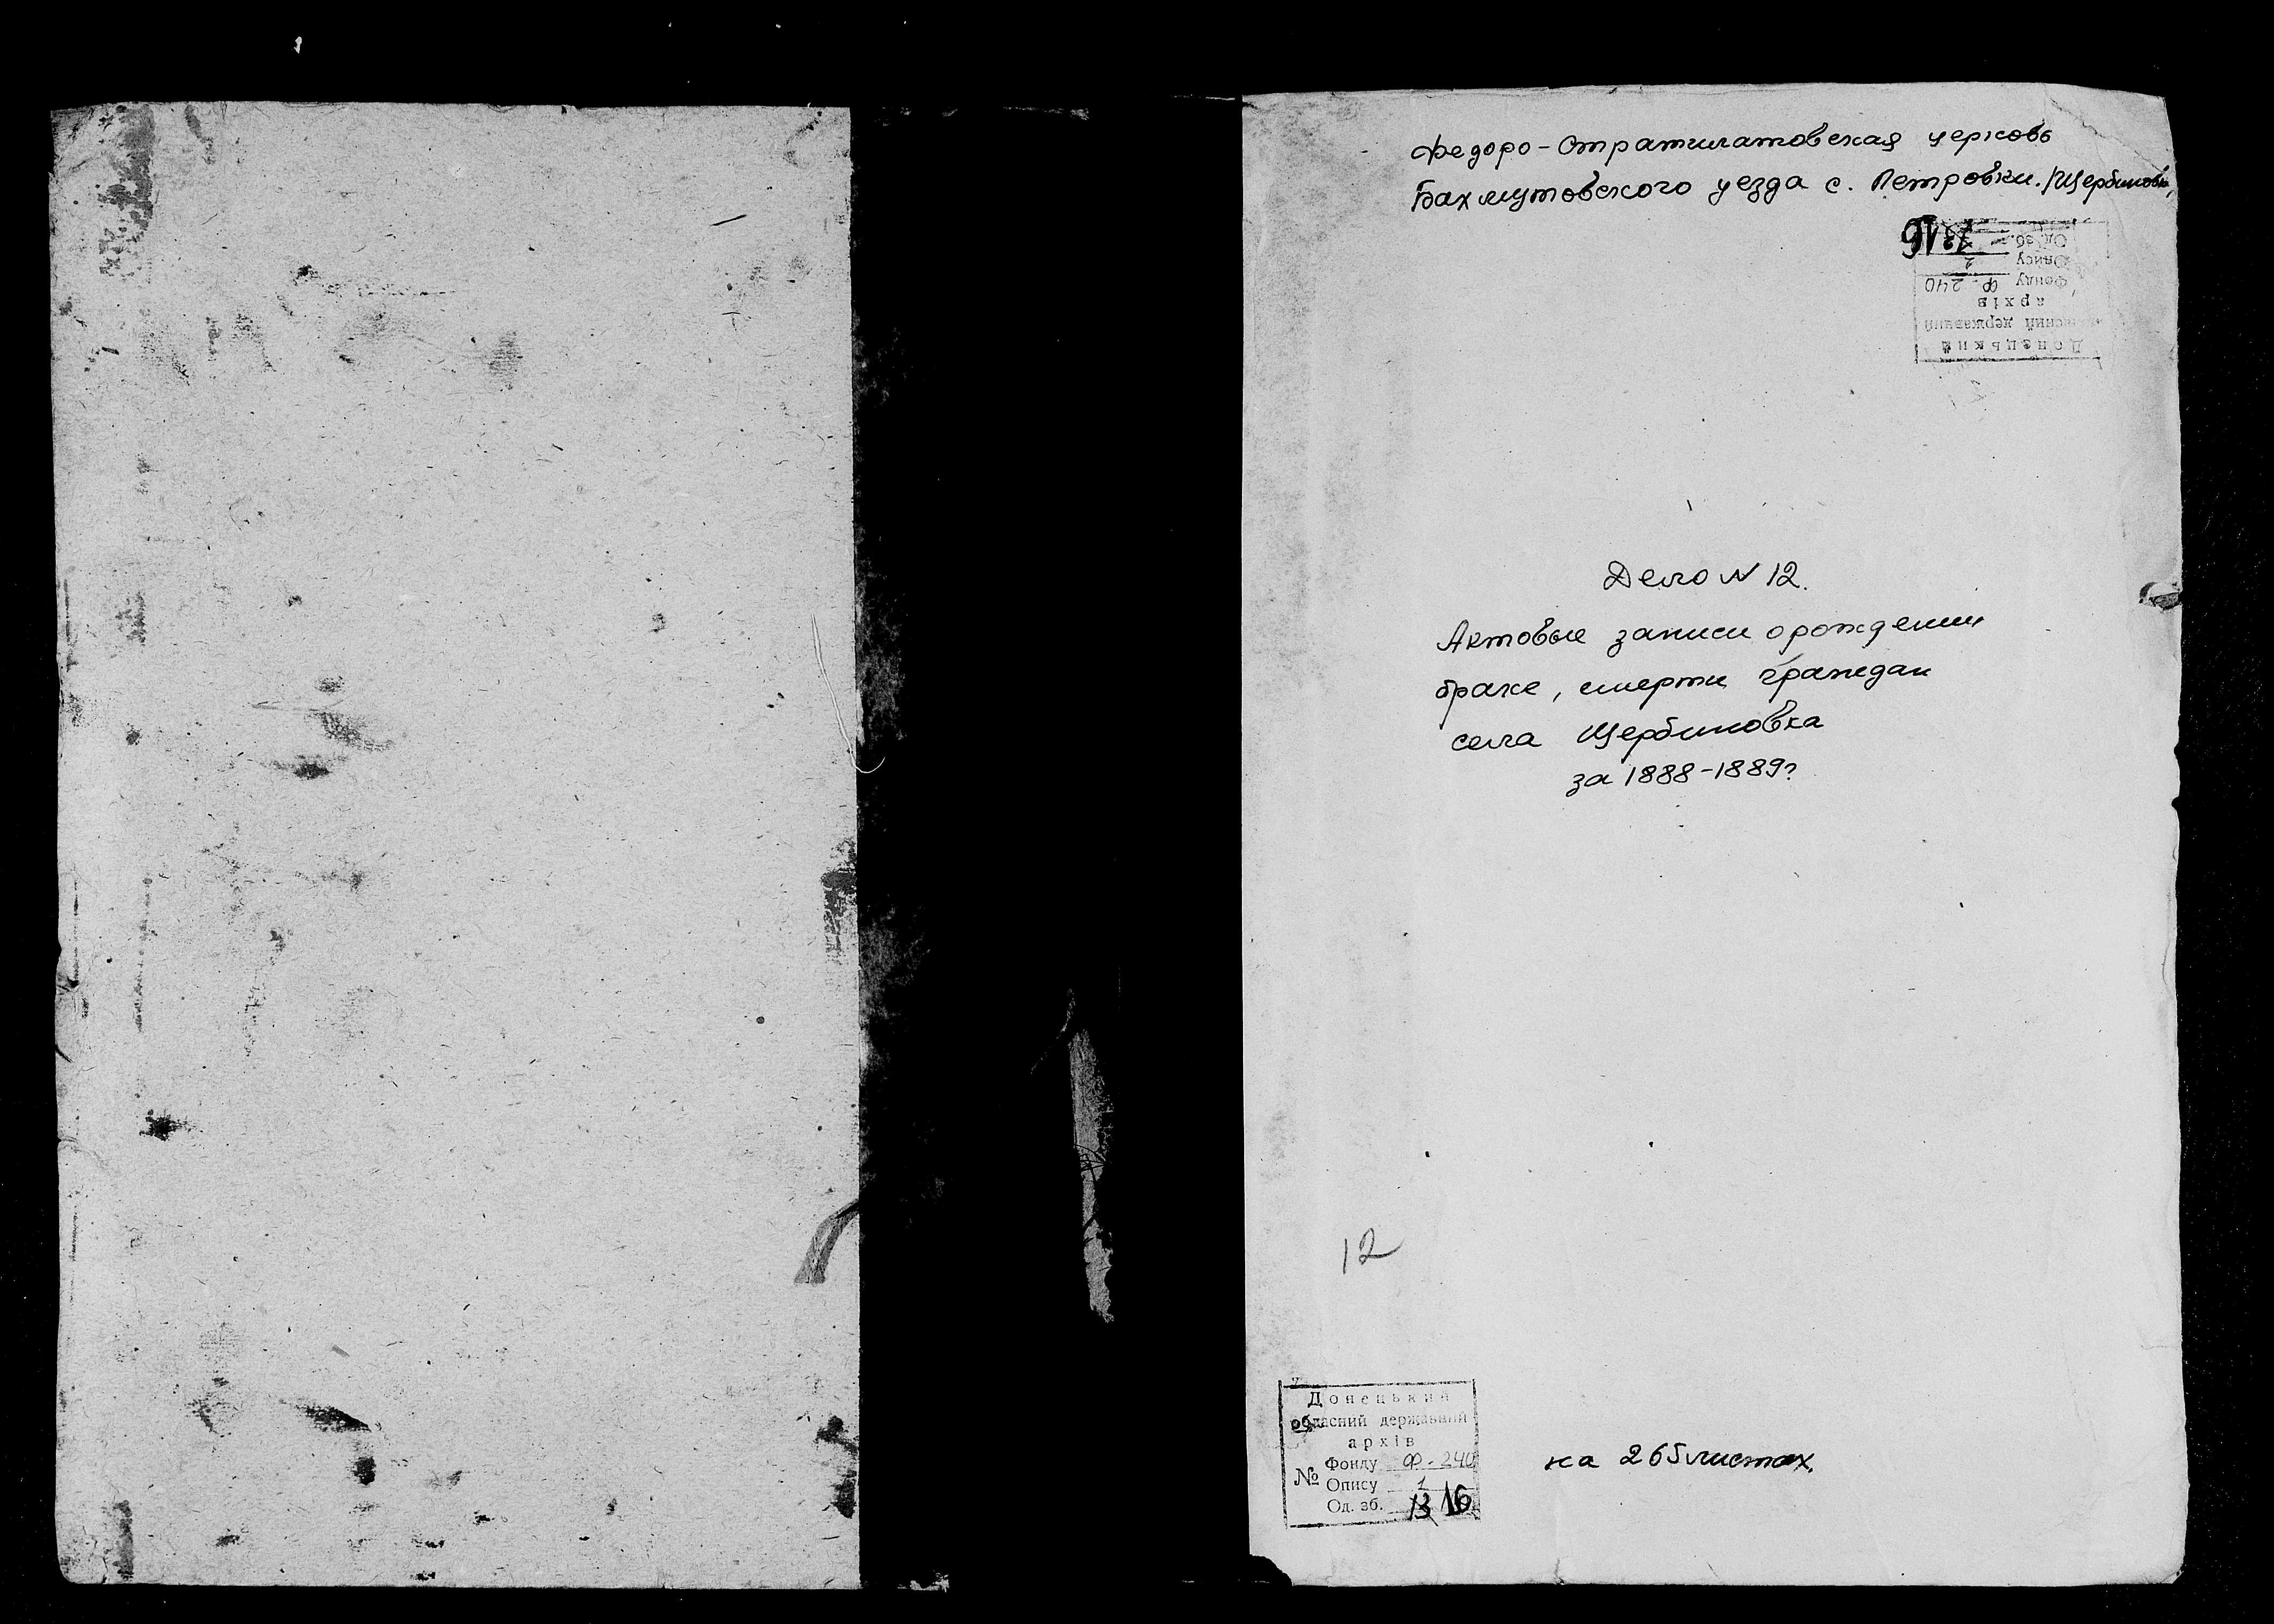 Федоро-Стратилатовская церковь
Бахмутовского уезда с. Петровки. /Щербиновка/
Донецький
обласний державний
архів
Фонду Ф-240
Опису 1
Од. зб. 13 16
Дело N 12.
Актовые записи о рождении
браке, смерти граждан
села Щербиновка
за 1888-1889г
12
Донецький
обласний державний
архів
№ Фонду Ф-240
Опису 1
Од. зб. 13 16
на 265 листах.